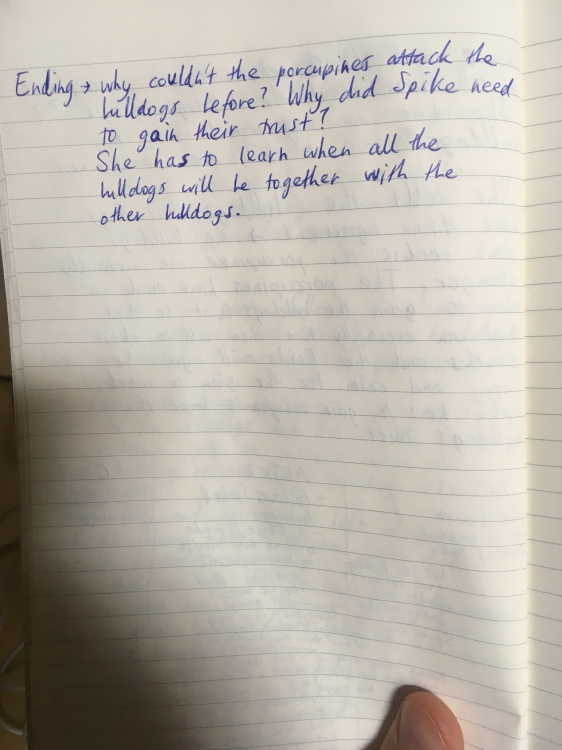 Ending → why couldn't the porcupines attack the
bulldogs before? Why did Spike need
to gain their trust?
She has to learn when all the
bulldogs will be together with the
other bulldogs.